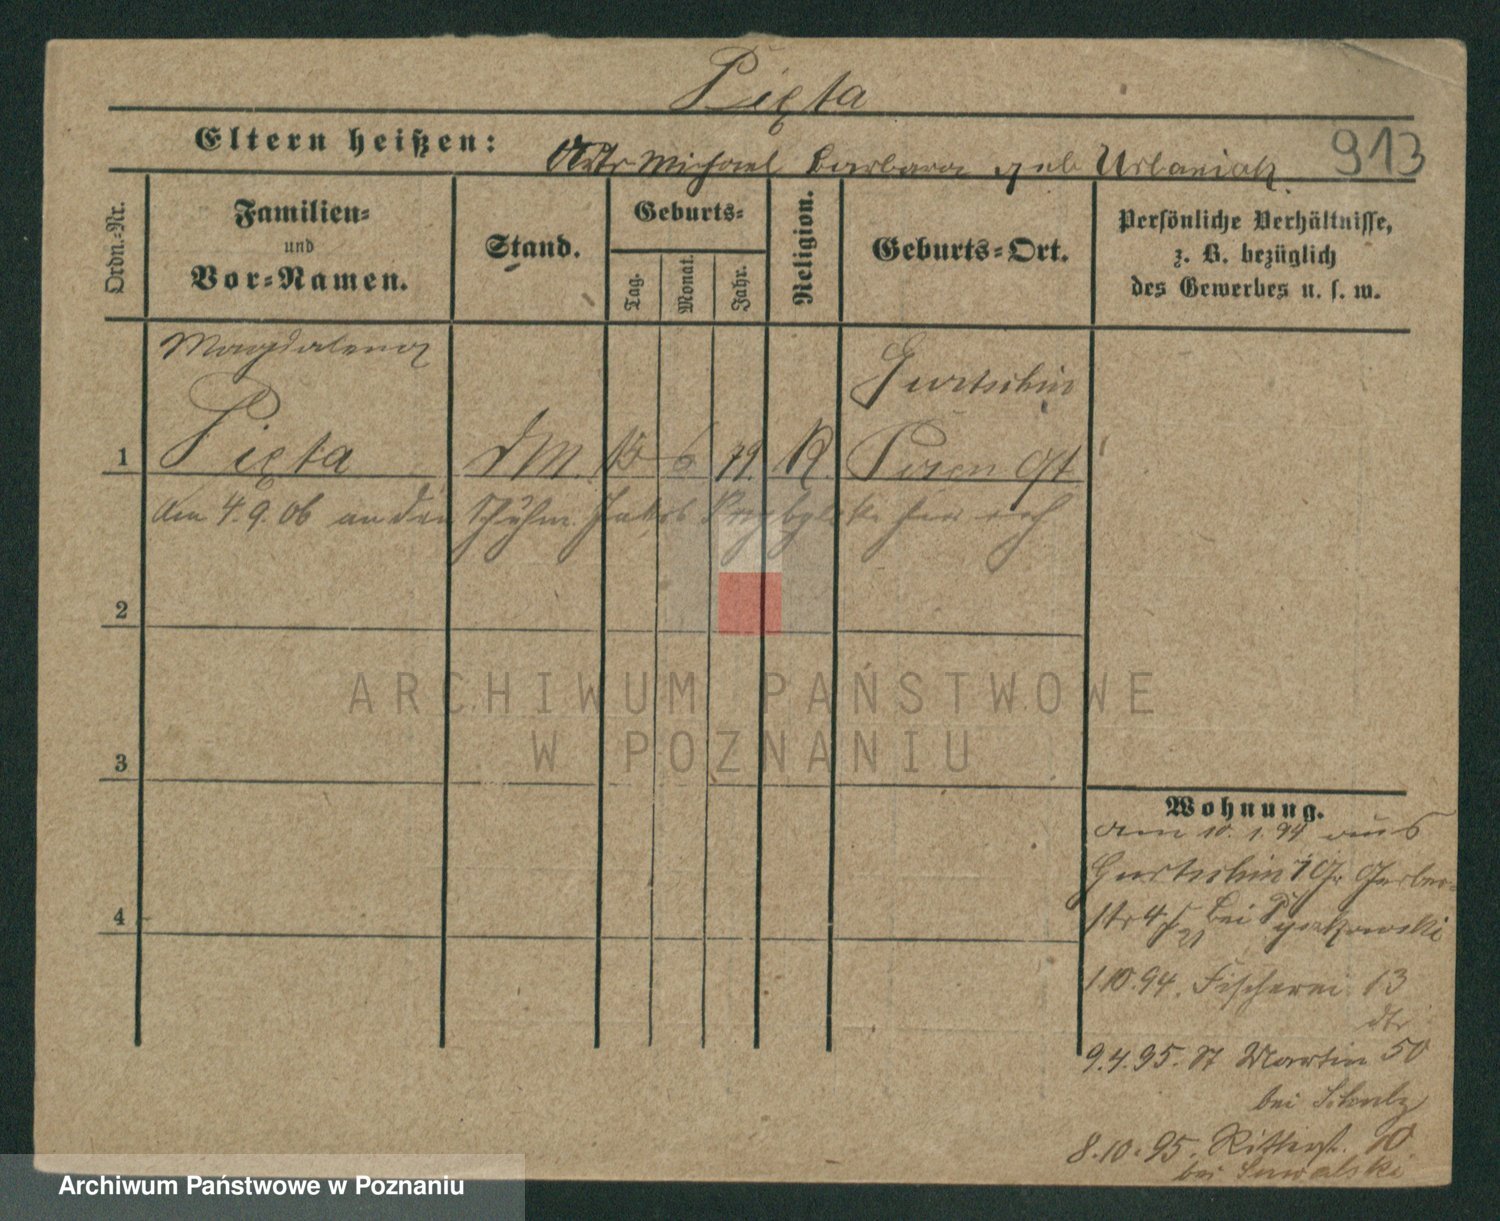 Pięta
Eltern heißen:
Michael Barbara geb Urbaniak
913
Ordn.-Nr.
Familien-
und
Vor-Namen.
Stand.
Geburts-
Tag.
Monat.
Jahr.
Religion.
Geburts-Ort.
Persönliche Verhältnisse,
z. B. bezüglich
des Gewerbes u. s. w.
Magdalena
Gurtschin
1 Pięta DM. 15 6 79. R. Posen Ost
am 4.9.06 an den Schuhm. Jakob
2
3
4
Wohnung.
am 10.1.94 aus
Gurtschin Gr Gerber-
str 4 bei
1.10.94. Fischerei 13
9.4.95. St Martin 50
bei Schulz
8.10.95. Ritterst. 10.
bei Suwalski
ARCHIWUM PAŃSTWOWE
W POZNANIU
Archiwum Państwowe w Poznaniu